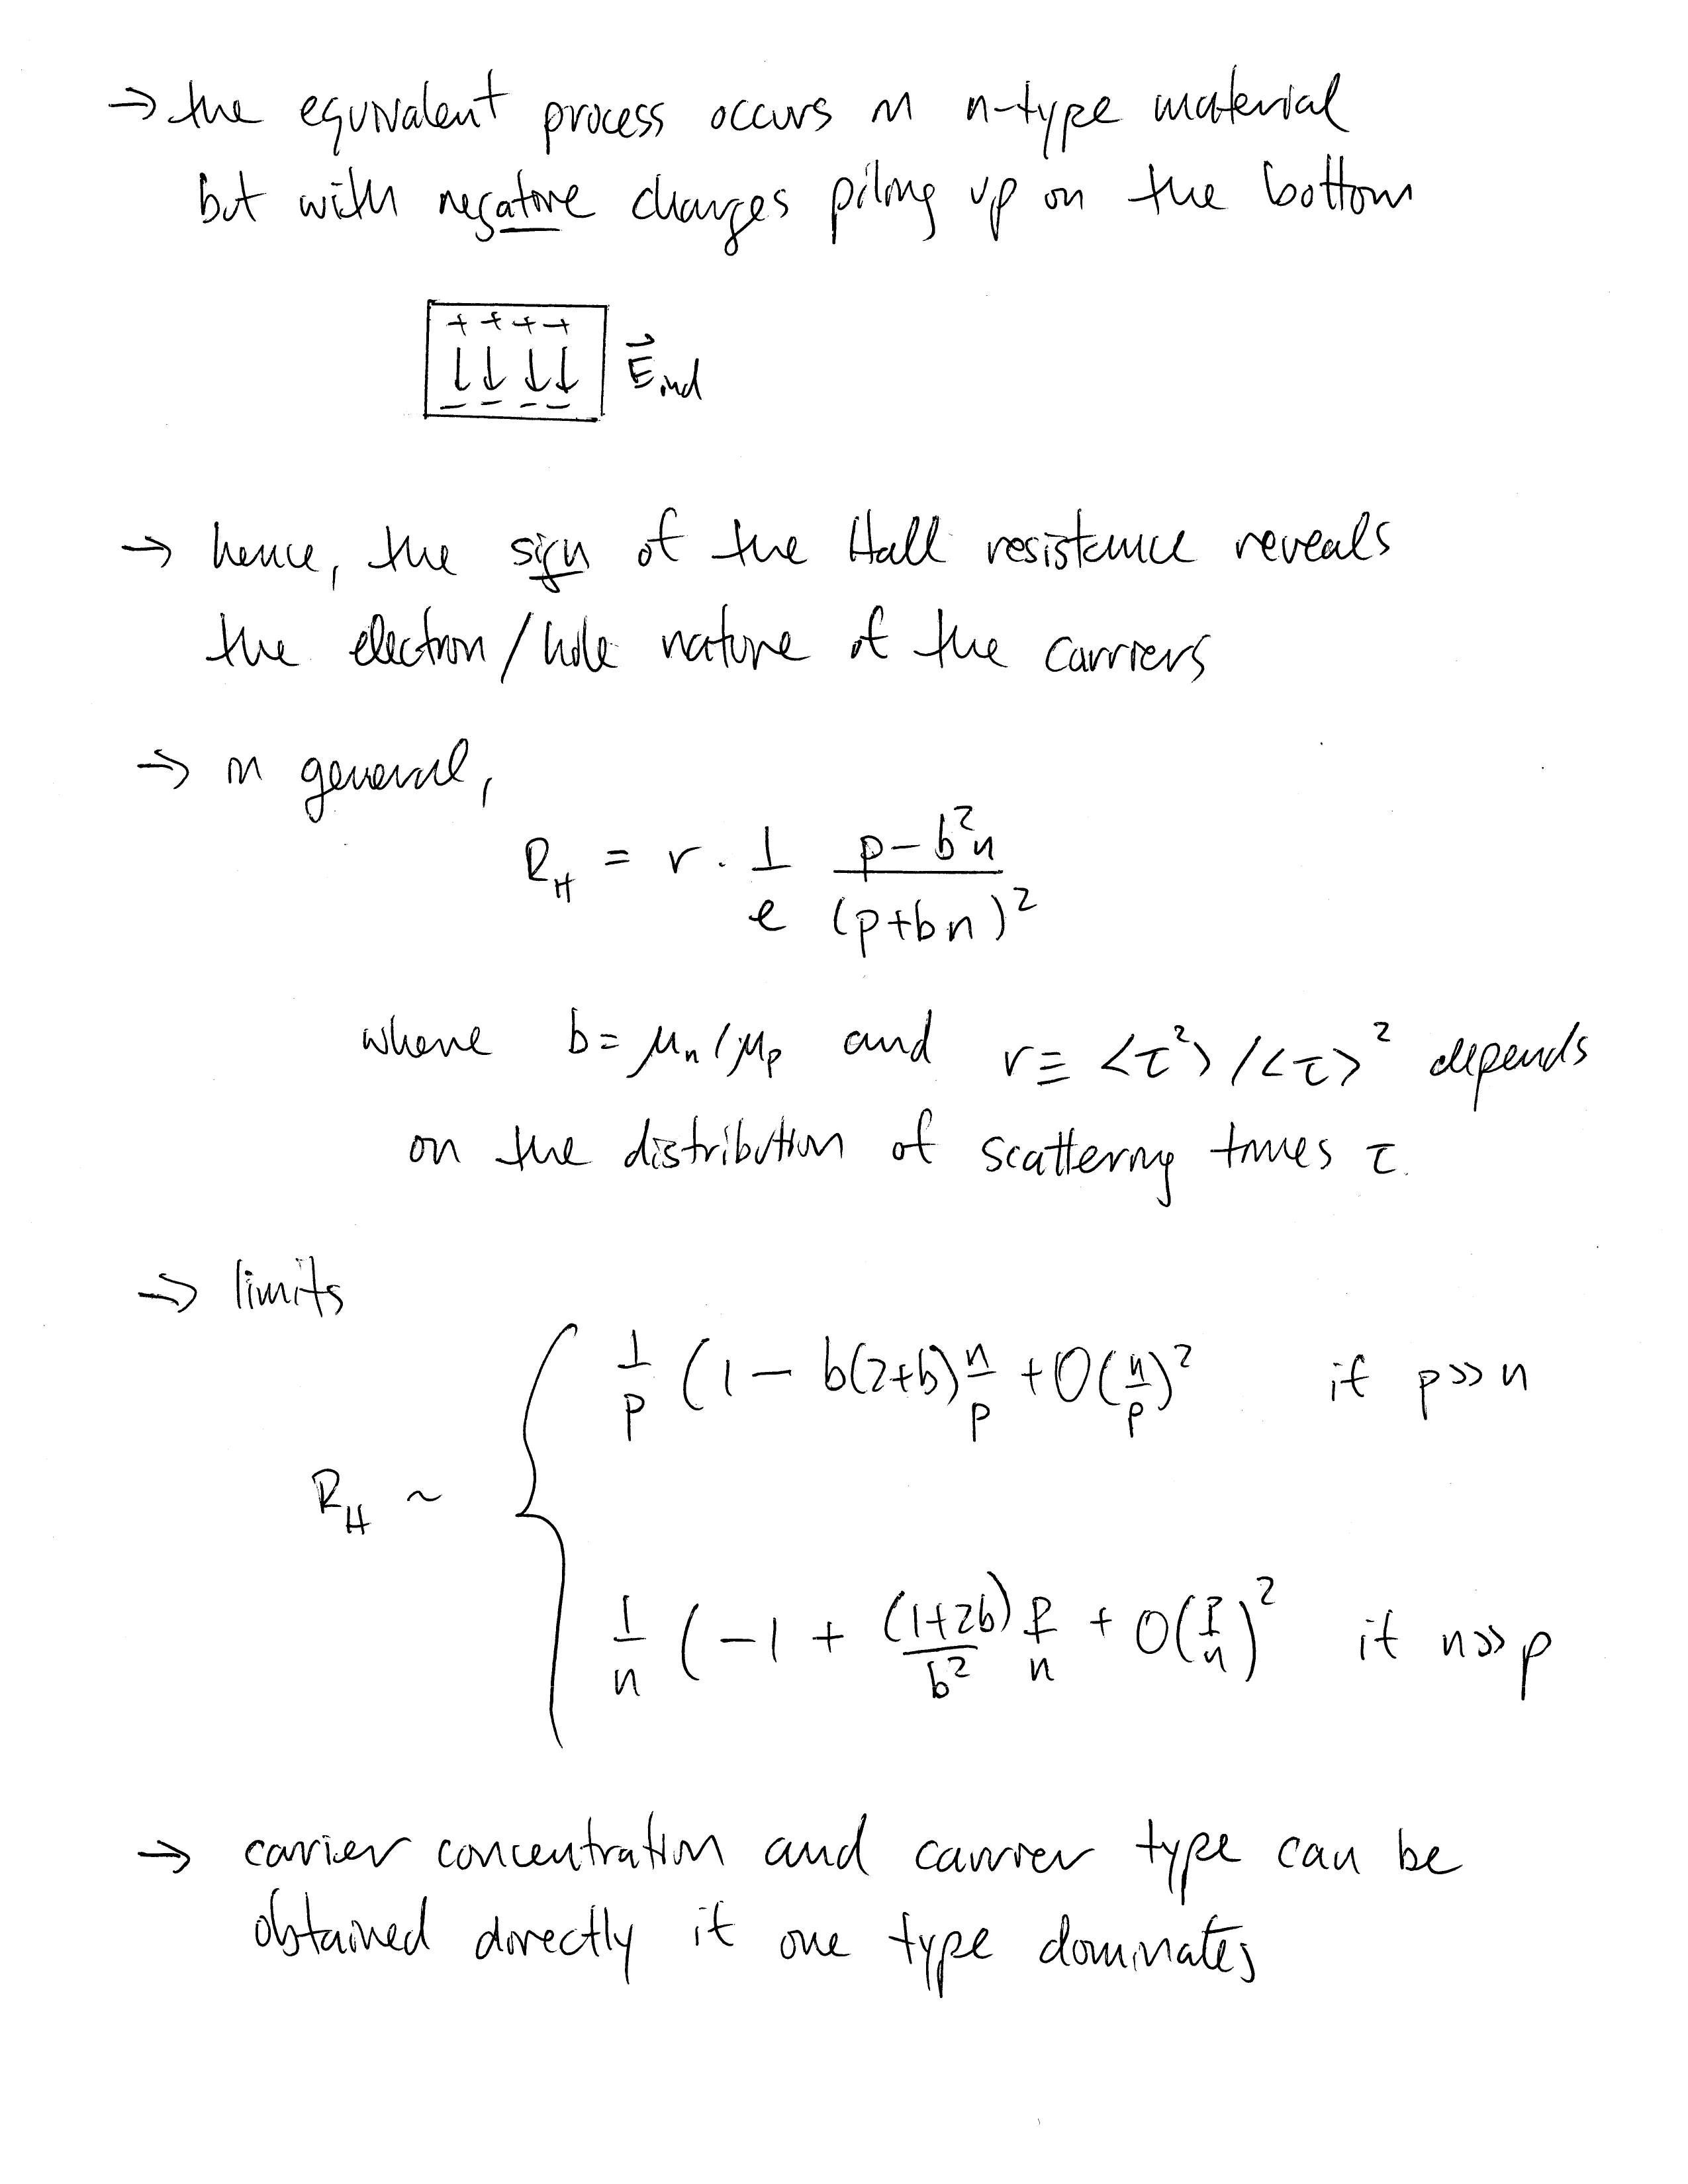 → the equivalent process occurs in n-type material
but with negative charges piling up on the bottom
+ + + +
↓ ↓ ↓ ↓ E⃗ind
– – – –
→ hence, the sign of the Hall resistance reveals
the electron/hole nature of the carriers
→ in general,
R_H = r · 1/e (p - b²n)/(p+bn)²
where b = μn/μp and r ≡ <τ²>/<τ>² depends
on the distribution of scattering times τ.
→ limits
R_H ~ { 1/p (1 - b(2+b) n/p + O(n/p)² if p>>n
1/n (-1 + (1+2b)/b² p/n + O(p/n)² if n>>p
→ carrier concentration and carrier type can be
obtained directly if one type dominates